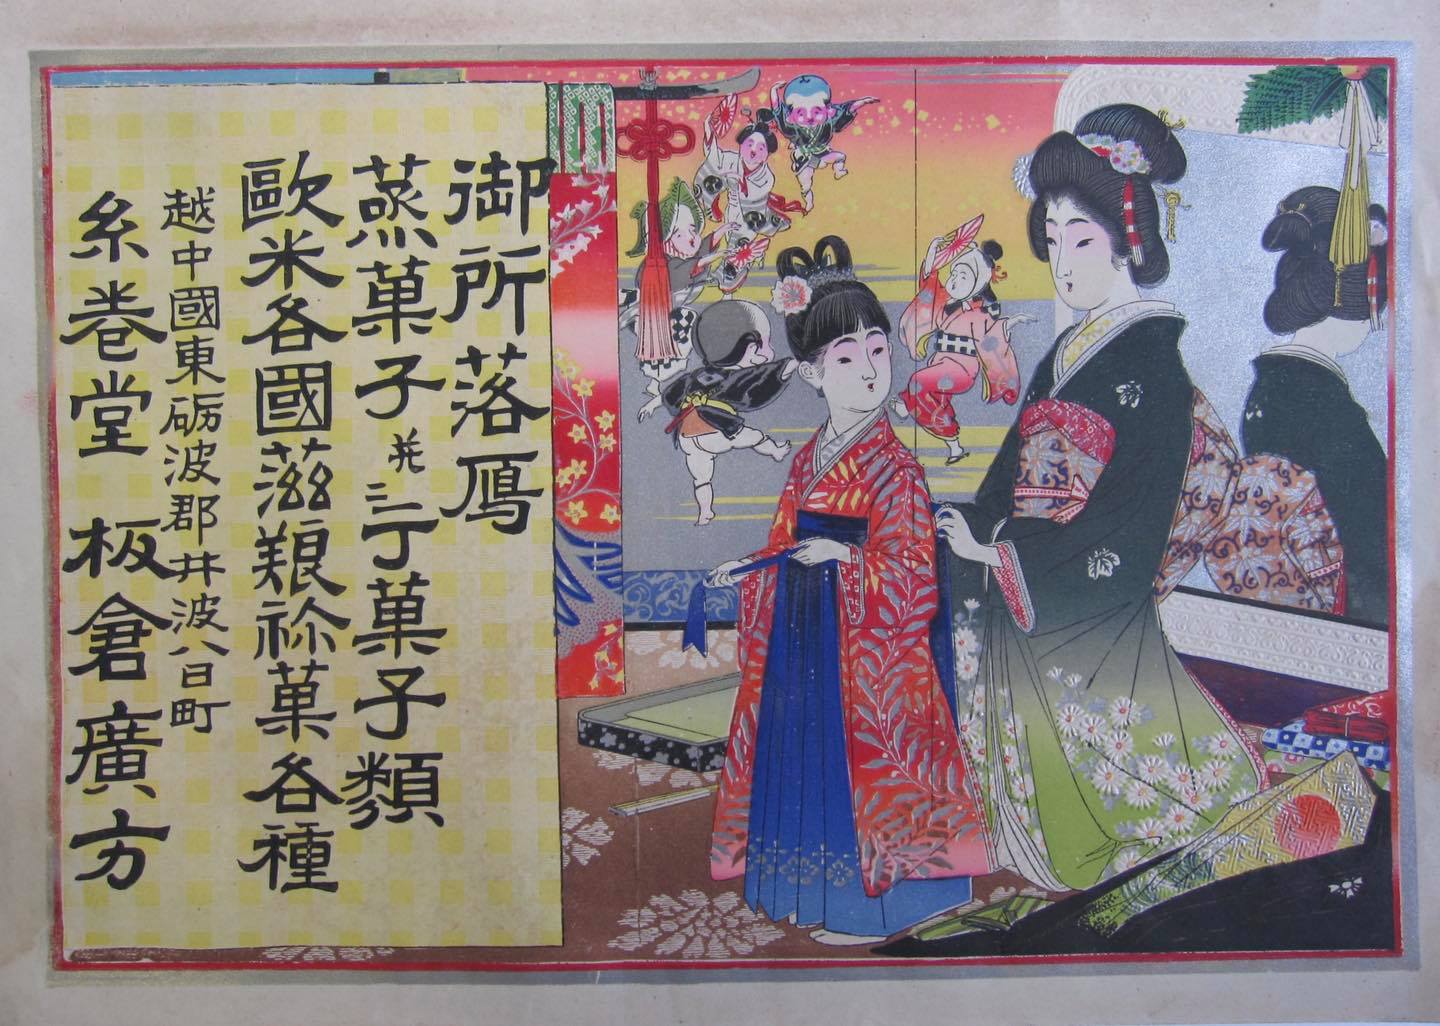 御所落鴈
蒸菓子並ニ三丁菓子類
歐米各國滋養珎菓各種
越中國東砺波郡井波八日町
糸巻堂 板倉廣方